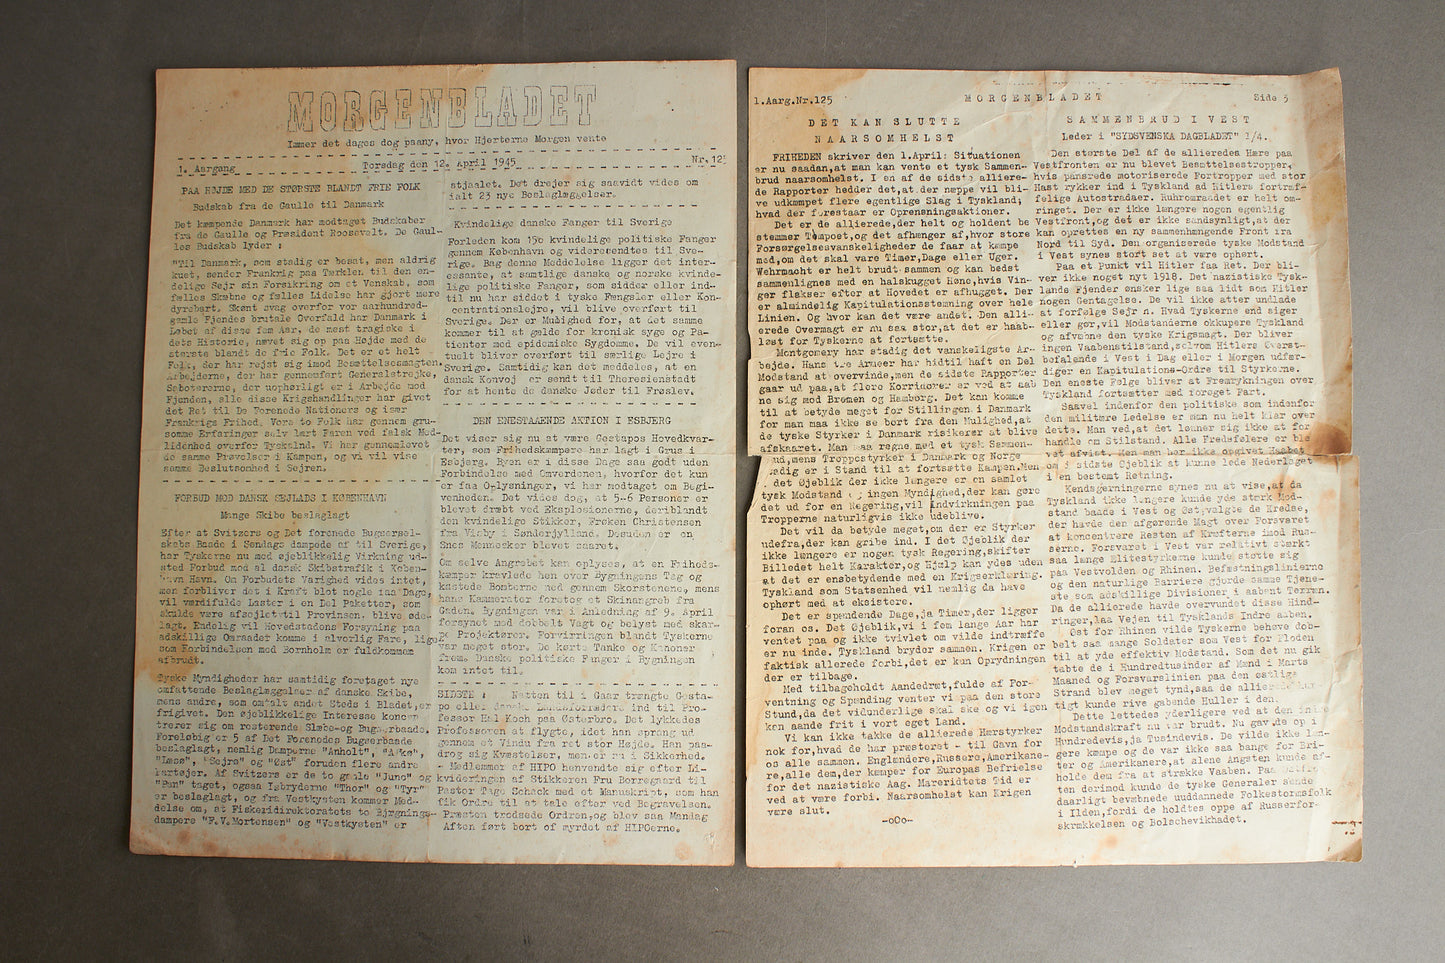 MORGENBLADET
Immer det dages dog paany, hvor Hjerterne Morgen vente
1. Aargang Torsdag den 12. April 1945 Nr.12
PAA HØJDE MED DE STØRSTE BLANDT FRIE FOLK
Budskab fra de Gaulle til Danmark
Det kæmpende Danmark har modtaget Budskaber
fra de Gaulle og Præsident Roosevelt. De Gaul-
les Budskab lyder :
"Til Danmark, som stadig er besat, men aldrig
kuet, sender Frankrig paa Tærklen til den en-
delige Sejr sin Forsikring om et Venskab, som
fælles Skæbne og fælles Lidelse har gjort mere
dyrebart. Skønt svag overfor vor aarhundred-
gamle Fjendes brutale Overfald har Danmark i
Løbet af disse fem Aar, de mest tragiske i
dets Historie, hævet sig op paa Højde med de
største blandt de frie Folk. Det er et helt
Folk, der har rejst sig imod Besættelsesmagten.
Arbejderne, der har gennemført Generalstrejke,
Sabotørerne, der uophørligt er i Arbejde mod
Fjenden, alle disse Krigshandlinger har givet
det Ret til De Forenede Nationers og især
Frankrigs Frihed. Vore to Folk har gennem gru-
somme Erfaringer selv lært Faren ved falsk Med-
lidenhed overfor Tyskland. Vi har gennemlevet
de samme Prøvelser i Kampen, og vi vil vise
samme Beslutsomhed i Sejren.
FORBUD MOD DANSK SEJLADS I KØBENHAVN
Mange Skibe beslaglagt
Efter at Svitzers og Det forenede Bugsersel-
skabs Baade i Søndags dampede af til Sverige,
har Tyskerne nu med øjeblikkelig Virkning ud-
sted Forbud mod al dansk Skibstrafik i Køben-
havn Havn. Om Forbudets Varighed vides intet,
men forbliver det i Kraft blot nogle faa Dage,
vil værdifulde Laster i en Del Paketter, som
skulde være afsejlet til Provinsen, blive øde-
lagt. Endelig vil Hovedstadens Forsyning paa
adskillige Omraader komme i alvorlig Fare, lige
som Forbindelsen med Bornholm er fuldkommen
afbrudt.
Tyske Myndigheder har samtidig foretaget nye
omfattende Beslaglæggelser af danske Skibe,
mens andre, som omtalt andet Steds i Bladet, er
frigivet. Den øjeblikkelige Interesse koncen-
trerer sig om resterende Slæbe-og Bugserbaade.
Foreløbig er 5 af Det Forenedes Bugserbaade
beslaglagt, nemlig Damperne "Anholt", "Asko",
"Læsø", "Sejrø" og "Øst" foruden flere andre
Fartøjer. Af Svitzers er de to gamle "Juno" og
"Pan" taget, ogsaa Isbryderne "Thor" og "Tyr"
er beslaglagt, og fra Vestkysten kommer Med-
delse om, at Fiskeridirektoratets to Bjrgnings-
dampere "F.V.Mortensen" og "Vestkysten" er
stjaalet. Det drejer sig saavidt vides om
ialt 23 nye Beslaglæggelser.
Kvindelige danske Fanger til Sverige
Forleden kom 156 kvindelige politiske Fanger
gennem København og videresendtes til Sve-
rige. Bag denne Meddelelse ligger det inter-
essante, at samtlige danske og norske kvinde-
lige politiske Fanger, som sidder eller ind-
til nu har siddet i tyske Fængsler eller Kon-
centrationslejre, vil blive overført til
Sverige. Der er Mulighed for, at det samme
kommer til at gælde for kronisk syge og Pa-
tienter med epidemiske Sygdomme. De vil even-
tuelt bliver overført til særlige Lejre i
Sverige. Samtidig kan det meddeles, at en
dansk Konvoj er sendt til Theresienstadt
for at hente de danske Jøder til Frøslev.
DEN ENESTAAENDE AKTION I ESBJERG
Det viser sig nu at være Gestapos Hovedkvar-
ter, som Frihedskæmpere har lagt i Grus i
Esbjerg. Byen er i disse Dage saa godt uden
Forbindelse med Omverdenen, hvorfor det kun
er faa Oplysninger, vi har modtaget om Begi-
venheden. Det vides dog, at 5-6 Personer er
blevet dræbt ved Eksplosionerne, deriblandt
den kvindelige Stikker, Frøken Christensen
fra Visby i Sønderjylland. Desuden er en
Snes Mennesker blevet saaret.
Om selve Angrebet kan oplyses, at en Friheds-
kæmper kravlede hen over Bygningens Tag og
kastede Bomberne ned gennem Skorstenene, mens
hans Kammerater foretog et Skinangreb fra
Gaden. Bygningen var i Anledning af 9. April
forsynet med dobbelt Vagt og belyst med skar-
pe Projektører. Forvirringen blandt Tyskerne
var meget stor. De kørte Tanks og Kanoner
frem. Danske politiske Fanger i Bygningen
kom intet til.
SIDSTE : Natten til i Gaar trængte Gesta-
po eller danske Landsforrædere ind til Pro-
fessor Hal Koch paa Østerbro. Det lykkedes
Professoren at flygte, idet han sprang ud
gennem et Vindu fra ret stor Højde. Han paa-
drog sig Kvæstelser, men er nu i Sikkerhed.
- Medlemmer af HIPO henvendte sig efter Li-
kvideringen af Stikkeren Fru Borregaard til
Pastor Tage Schack med et Manuskript, som han
fik Ordre til at tale efter ved Begravelsen.
Præsten trodsede Ordren, og blev saa Mandag
Aften ført bort of myrdet af HIPOerne.
1.Aarg.Nr.125 MORGENBLADET Side 3
DET KAN SLUTTE
NAARSOMHELST
FRIHEDEN skriver den 1.April: Situationen
er nu saadan,at man kan vente et tysk Sammen-
brud naarsomhelst. I en af de sidste alliere-
de Rapporter hedder det,at der næppe vil bli-
ve udkæmpet flere egentlige Slag i Tyskland;
hvad der forestaar er Oprensningsaktioner.
Det er de allierede,der helt og holdent be
stemmer Tempoet,og det afhænger af,hvor store
Forsørgelsesvanskeligheder de faar at kæmpe
med,om det skal vare Timer,Dage eller Uger.
Wehrmacht er helt brudt sammen og kan bedst
sammenlignes med en halshugget Høne,hvis Vin-
ger flakser efter at Hovedet er afhugget. Der
er almindelig Kapitulationsstemning over hele
Linien. Og hvor kan det være andet. Den alli-
erede Overmagt er nu saa stor,at det er haab-
løst for Tyskerne at fortsætte.
Montgomery har stadig det vanskeligste Ar-
bejde. Hans tre Armeer har hidtil haft en Del
Modstand at overvinde,men de sidste Rapporter
gaar ud paa,at flere Korridorer er ved at aab
ne sig mod Bremen og Hamborg. Det kan komme
til at betyde meget for Stillingen i Danmark
for man maa ikke se bort fra den Mulighed,at
de tyske Styrker i Danmark risikerer at blive
afskaaret. Man maa regne med et tysk Sammen-
ud,mens Troppestyrker i Danmark og Norge
adig er i Stand til at fortsætte Kampen.Men
det Øjeblik der ikke længere er en samlet
tysk Modstand og ingen Myndighed,der kan gøre
det ud for en Regering,vil Indvirkningen paa
Tropperne naturligvis ikke udeblive.
Det vil da betyde meget,om der er Styrker
udefra,der kan gribe ind. I det Øjeblik der
ikke længere er nogen tysk Regering,skifter
Billedet helt Karakter,og Hjælp kan ydes uden
at det er ensbetydende med en Krigserklæring.
Tyskland som Statsenhed vil nemlig da have
ophørt med at eksistere.
Det er spændende Dage,ja Timer,der ligger
foran os. Det Øjeblik,vi i fem lange Aar har
ventet paa og ikke tvivlet om vilde indtræffe
er nu inde. Tyskland bryder sammen. Krigen er
faktisk allerede forbi,det er kun Oprydningen
der er tilbage.
Med tilbageholdt Aandedræt,fulde af For-
ventning og Spænding venter vi paa den store
Stund,da det vidunderlige skal ske og vi igen
kan aande frit i vort eget Land.
Vi kan ikke takke de allierede Hærstyrker
nok for,hvad de har præsteret - til Gavn for
os alle sammen. Englændere,Russere,Amerikane-
re,alle dem,der kæmper for Europas Befrielse
for det nazistiske Aag. Mareridtets Tid er
ved at være forbi. Naarsomhelst kan Krigen
være slut.
-oOo-
SAMMENBRUD I VEST
Leder i "SYDSVENSKA DAGBLADET" 1/4.
Den største Del af de allieredes Hære paa
Vestfronten er nu blevet Besættelsestropper,
hvis pansrede motoriserede Fortropper med stor
Hast rykker ind i Tyskland ad Hitlers fortræf-
felige Autostradaer. Ruhromraadet er helt om-
ringet. Der er ikke længere nogen egentlig
Vestfront,og det er ikke sandsynligt,at der
kan oprettes en ny sammenhængende Front fra
Nord til Syd. Den organiserede tyske Modstand
i Vest synes stort set at være ophørt.
Paa et Punkt vil Hitler faa Ret. Der bli-
ver ikke noget nyt 1918. Det nazistiske Tysk-
lands Fjender ønsker lige saa lidt som Hitler
nogen Gentagelse. De vil ikke atter undlade
at forfølge Sejr n. Hvad Tyskerne end siger
eller gør,vil Modstanderne okkupere Tyskland
og afvæbne den tyske Krigsmagt. Der bliver
ingen Vaabenstilstand,selvom Hitlers Øverst-
befalende i Vest i Dag eller i Morgen udfær-
diger en Kapitulations-Ordre til Styrkerne.
Den eneste Følge bliver at Fremrykningen over
Tyskland fortsætter med forøget Fart.
Saavel indenfor den politiske som indenfor
den militære Ledelse er man nu helt klar over
dette. Man ved,at det lønner sig ikke at for
handle om Stilstand. Alle Fredsfølere er ble
vet afvist. Men man har ikke opgivet Haabet
om i sidste Øjeblik at kunne lede Nederlaget
i en bestemt Retning.
Kendsgerningerne synes nu at vise,at da
Tyskland ikke længere kunde yde stærk Mod-
stand baade i Vest og Øst,valgte de Kredse,
der havde den afgørende Magt over Forsvaret
at koncentrere Resten af Kræfterne imod Rus-
serne. Forsvaret i Vest var relativt stærkt
saa længe Elitestyrkerne kunde støtte sig
paa Vestvolden og Rhinen. Befæstningslinierne
og den naturlige Barriere gjorde samme Tjene-
ste som adskillige Divisioner i aabent Terræn.
Da de allierede havde overvundet disse Hind-
ringer,laa Vejen til Tysklands Indre aaben.
Øst for Rhinen vilde Tyskerne behøve dob-
belt saa mange Soldater som Vest for Floden
til at yde effektiv Modstand. Som det nu gik
tabte de i Hundredtusinder af Mænd i Marts
Maaned og Forsvarslinien paa den østlige
Strand blev meget tynd,saa de allierede
tigt kunde rive gabende Huller i den.
Dette lettedes yderligere ved at den
Modstandskraft nu var brudt. Nu gav de op i
Hundredevis,ja Tusindevis. De vilde ikke læn-
gere kæmpe og de var ikke saa bange for Bri-
ter og Amerikanere,at alene Angsten kunde af-
holde dem fra at strække Vaaben. Paa
ten derimod kunde de tyske Generaler sende
daarligt bevæbnede uuddannede Folkestormsfolk
i Ilden,fordi de holdtes oppe af Russerfor-
skrækkelsen og Bolschevikhadet.